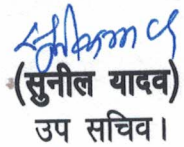 (सुनील यादव)
उप सचिव।